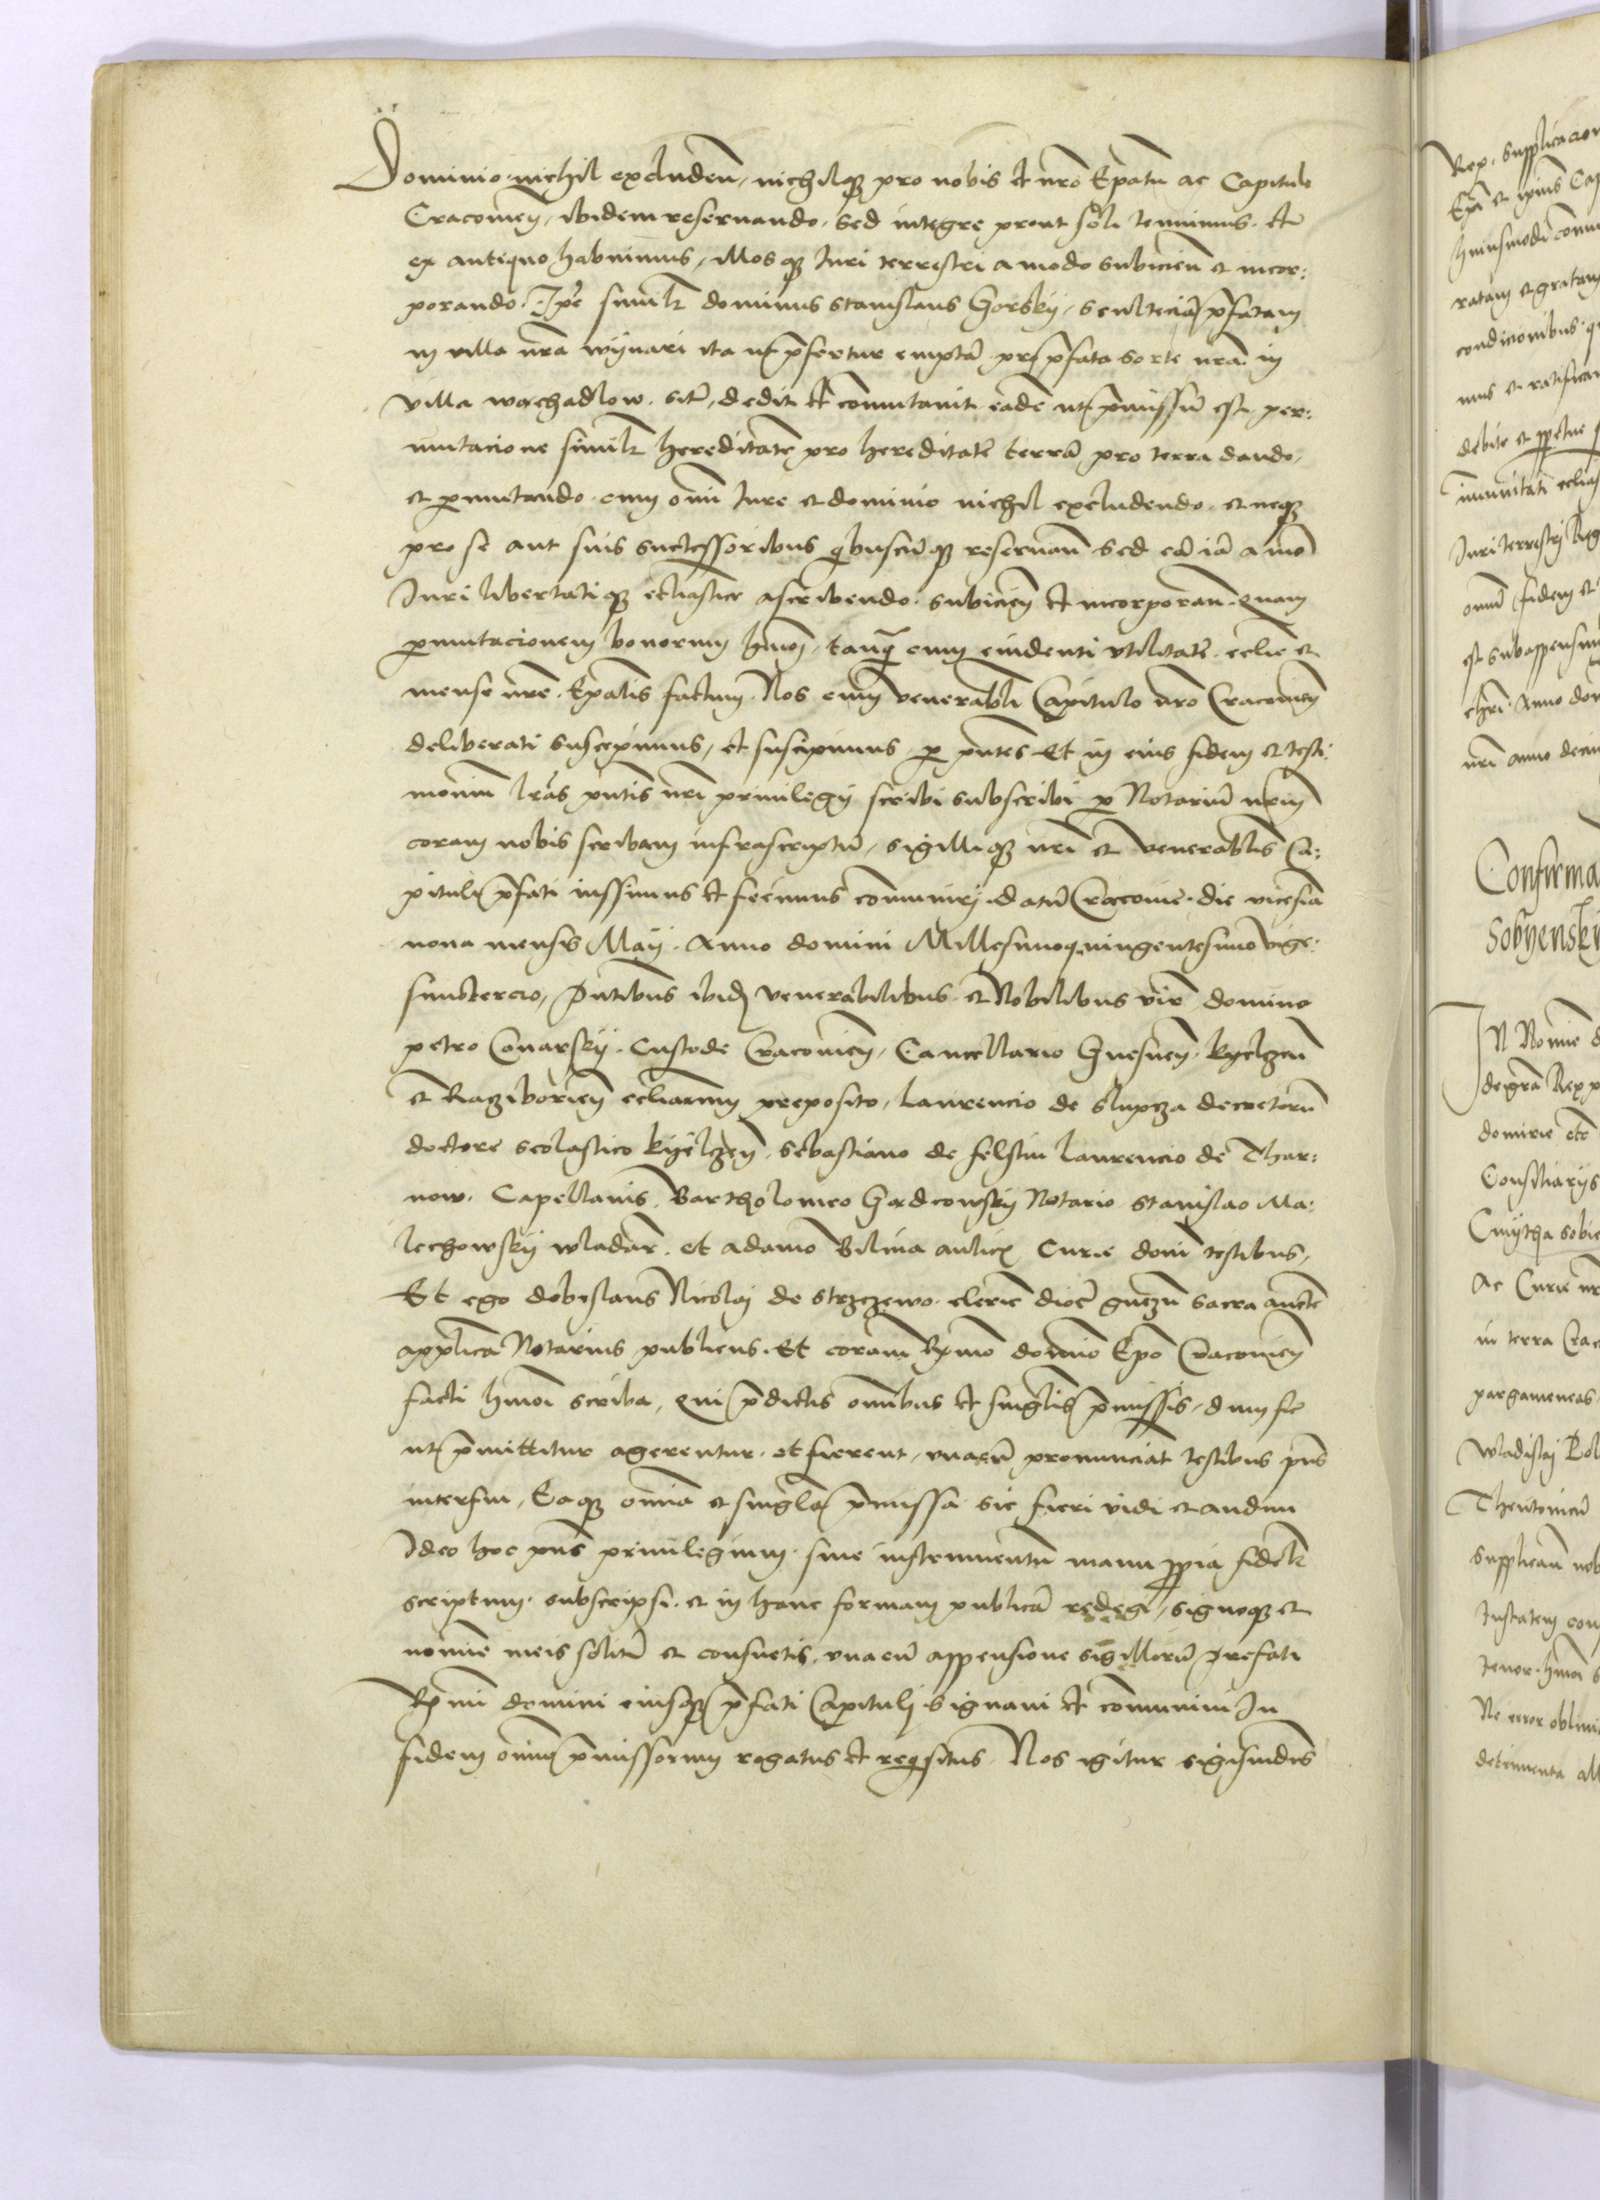 Dominio nichil excludeñ, nichilqꝫ pro nobis et nr̃o Ep̃atu ac Capitulo
Cracovieñ, ibidem reservando, sed integre prout soli tenuimus et
ex antiquo habuimus, illosqꝫ Iuri terrestri a modo subicieñ et incor:
porando. Ip̃e simil̃r dominus Stanislaus Gorskij, scultecia p̃fatam
in villa nr̃a wynari ita ut p̃fertur empta pro p̃fata sorte nr̃a in
villa wochadlow, sit̃, dedit et com̃utavit eadẽ ut p̃missũ est per:
mutacione simil̃r hereditatẽ pro hereditate terrã pro terra dando,
et p̱mutando cum om̃i Iure et dominio nichil excludendo, et neqꝫ
pro se aut suis successoribus q̃buscũqꝫ reservañ sed eã iã a mõ
Iuri libertatiqꝫ eccliastice ascribendo subicieñ et incorporañ. Quam
p̱mutacionem bonorum hmõi, tanq̃ cum evidenti utilitate ecclie et
mense nr̃e Ep̃alis factum. Nos cum venerabli Capitulo nr̃o Cracovieñ
deliberati suscepimus, et suscipimus p̱ pñtes. Et in eius fidem et testi:
moniũ lr̃as pñtis nr̃i privilegij scribi subscribi p̱ Notariũ nr̃um
coram nobis scribam infrascriptũ, sigilliqꝫ nr̃i et venerablis Ca:
pituli p̃fati iussimus et fecimus com̃uniri. datũ Cracovie die vicesiã
nona mensis Maij. Anno domini Millesimoquingentesimo vige:
simotercio, Pñtibus ibidẽ venerabilibus et Nobilibus viris domino
petro Conarskij Custode Cracovieñ, Cancellario Gnesneñ, kyelczeñ
et Raczibořieñ eccliarum preposito, Laurencio de Slupcza decretorũ
doctore scolastico kyelczeñ, Sebastiano de felstin Laurencio de Thar:
now, Capellanis, Bartholomeo Gardcowskij Notario Stanislao Ma:
lechowskij wladař, et Adamo Bilina aulicis Curie dom̃ testibus,
Et ego dobeslaus Nicolai de Strzezewo clericus dioc̃ gnezñ sacra auctẽ
app̃lica Notarius publicus. Et coram R̃mo domino Ep̃o Cracovieñ
facti hmõi scriba, Quia p̃dictis om̃ibus et singlis p̃missis, dum sic
ut p̃mittitur agerentur et fierent, unacũ pronunciat̃ testibus p̃ns
interfui, Eaqꝫ om̃ia et singla p̃missa sic fieri vidi et audivi
Ideo hoc p̃ns privilegium sive instrumentũ manu p̱pria fidel̃r
scriptum subscripsi et in hanc formam publicã redegi, signoqꝫ et
nomine meis solitis et consuetis, unacũ appensione sigillorũ prefati
R̃mi domini eiusqꝫ p̃fati Capituli signavi et com̃univi In
fidem om̃iũ p̃missorum rogatus et req̃situs. Nos igitur sigismũdus
Rex, supplicacion
Ep̃i et ipius Cap
huiusmodi com̃u
ratam et gratam
condicionibus q
mus et ratifica
debite et p̱petue
im̃unitati eccliãs
Iuri terrestrj Reg
om̃i fidem et
est subappensum
chr̃i Anno dom
nr̃i anno deci
Confirma
Sobyenskj
IN Nomine d
dei gra Rex p
domine etc
Consiliarijs
Cmytha Sobie
Ac Curie nr
in terra Crac
pargameneas
Wladislaj Lok
Theutonicũ
Supplicañ nob
Instatem con
tenor hmõi s
Ne error oblivi
detrimenta all